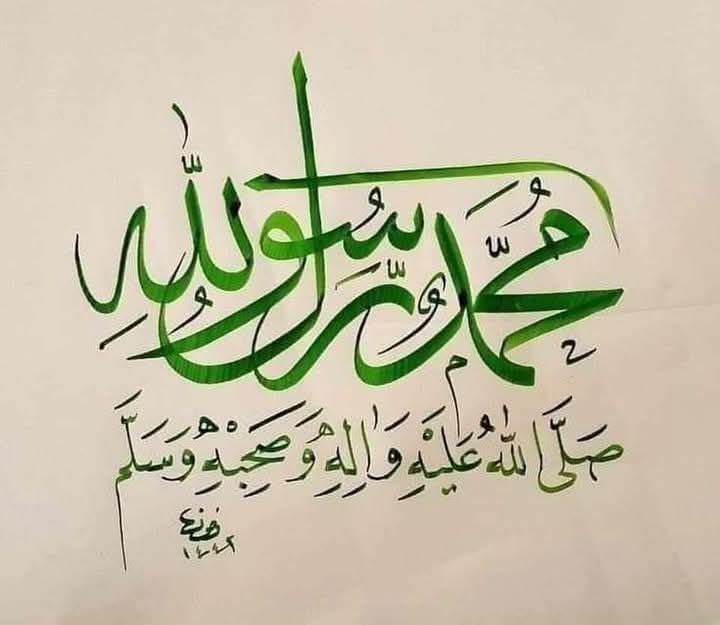 مُحَمَّدٌ رَّسُولُ اللّٰهِ
صَلَّى اللّٰهُ عَلَيْهِ وَاٰلِهٖ وَصَحْبِهٖ وَسَلَّمَ
١٤٤٢